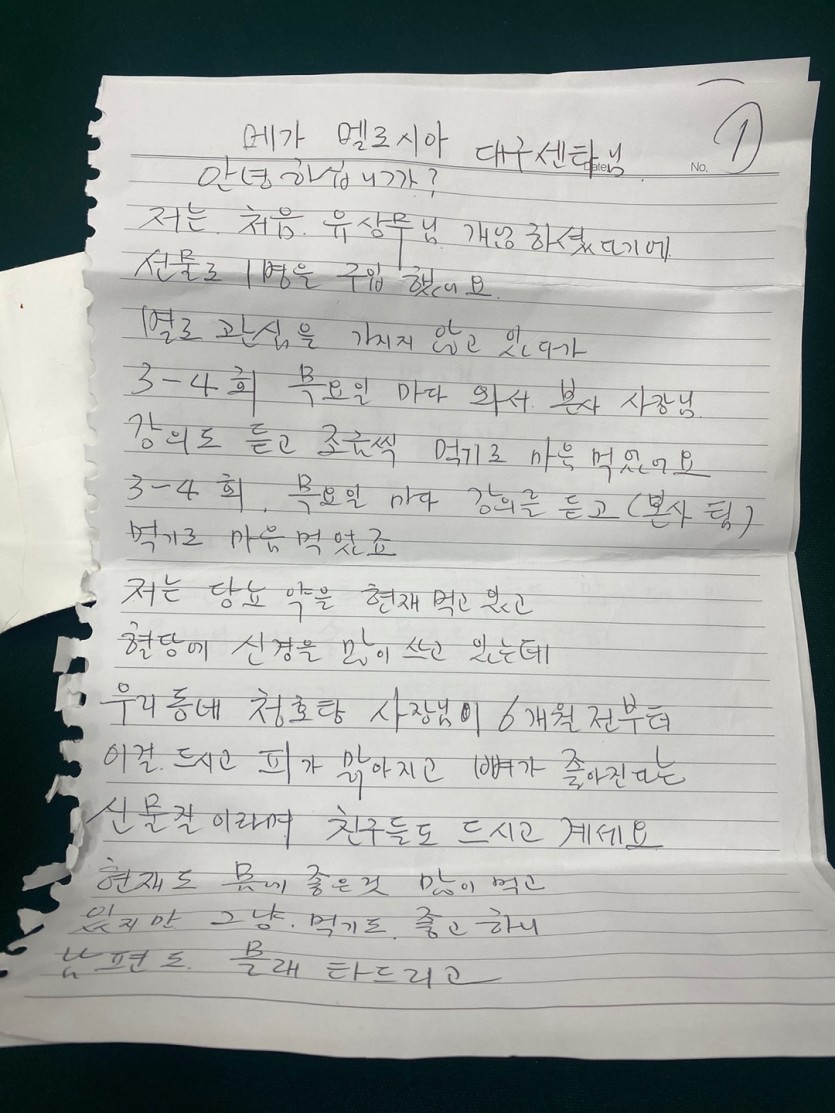 메가 멜로시아 대구센타님
Date
No. ①
안녕하십니까?
저는 처음 유상무님 개업하셨다기에
선물로 1병을 구입했어요
별로 관심을 가지지 않고 있다가
3-4회 목요일 마다 와서 본사 사장님
강의도 듣고 조금씩 먹기로 마음 먹었어요
3-4회. 목요일 마다 강의를 듣고 (본사 팀)
먹기로 마음먹었죠
저는 당뇨 약을 현재 먹고 있고
혈당에 신경을 많이 쓰고 있는데
우리동네 청호탕 사장님이 6개월 전부터
이걸 드시고 피가 맑아지고 뼈가 좋아진다는
신물질이라며 친구들도 드시고 계세요
현재도 몸에 좋은것 많이 먹고
있지만 그냥. 먹기도. 좋고 하니
남편도. 몰래 타드리고